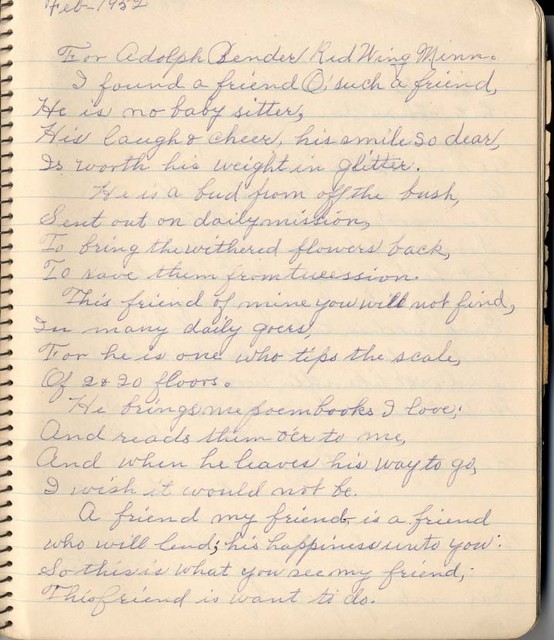 Feb-1952
For Adolph Bender Red Wing Minn.
I found a friend O, such a friend,
He is no baby sitter,
His laugh & cheer, his smile so dear,
Is worth his weight in glitter.
He is a bud from off the bush,
Sent out on daily mission,
To bring the withered flowers back,
To save them from
This friend of mine you will not find,
In many daily goers,
For he is one who tips the scale,
Of 2 & 20 floors.
He brings me poem books I love;
And reads them o'er to me,
And when he leaves his way to go,
I wish it would not be.
A friend my friend, is a friend
who will lend; his happiness unto you:
So this is what you see my friend,
This friend is want to do.